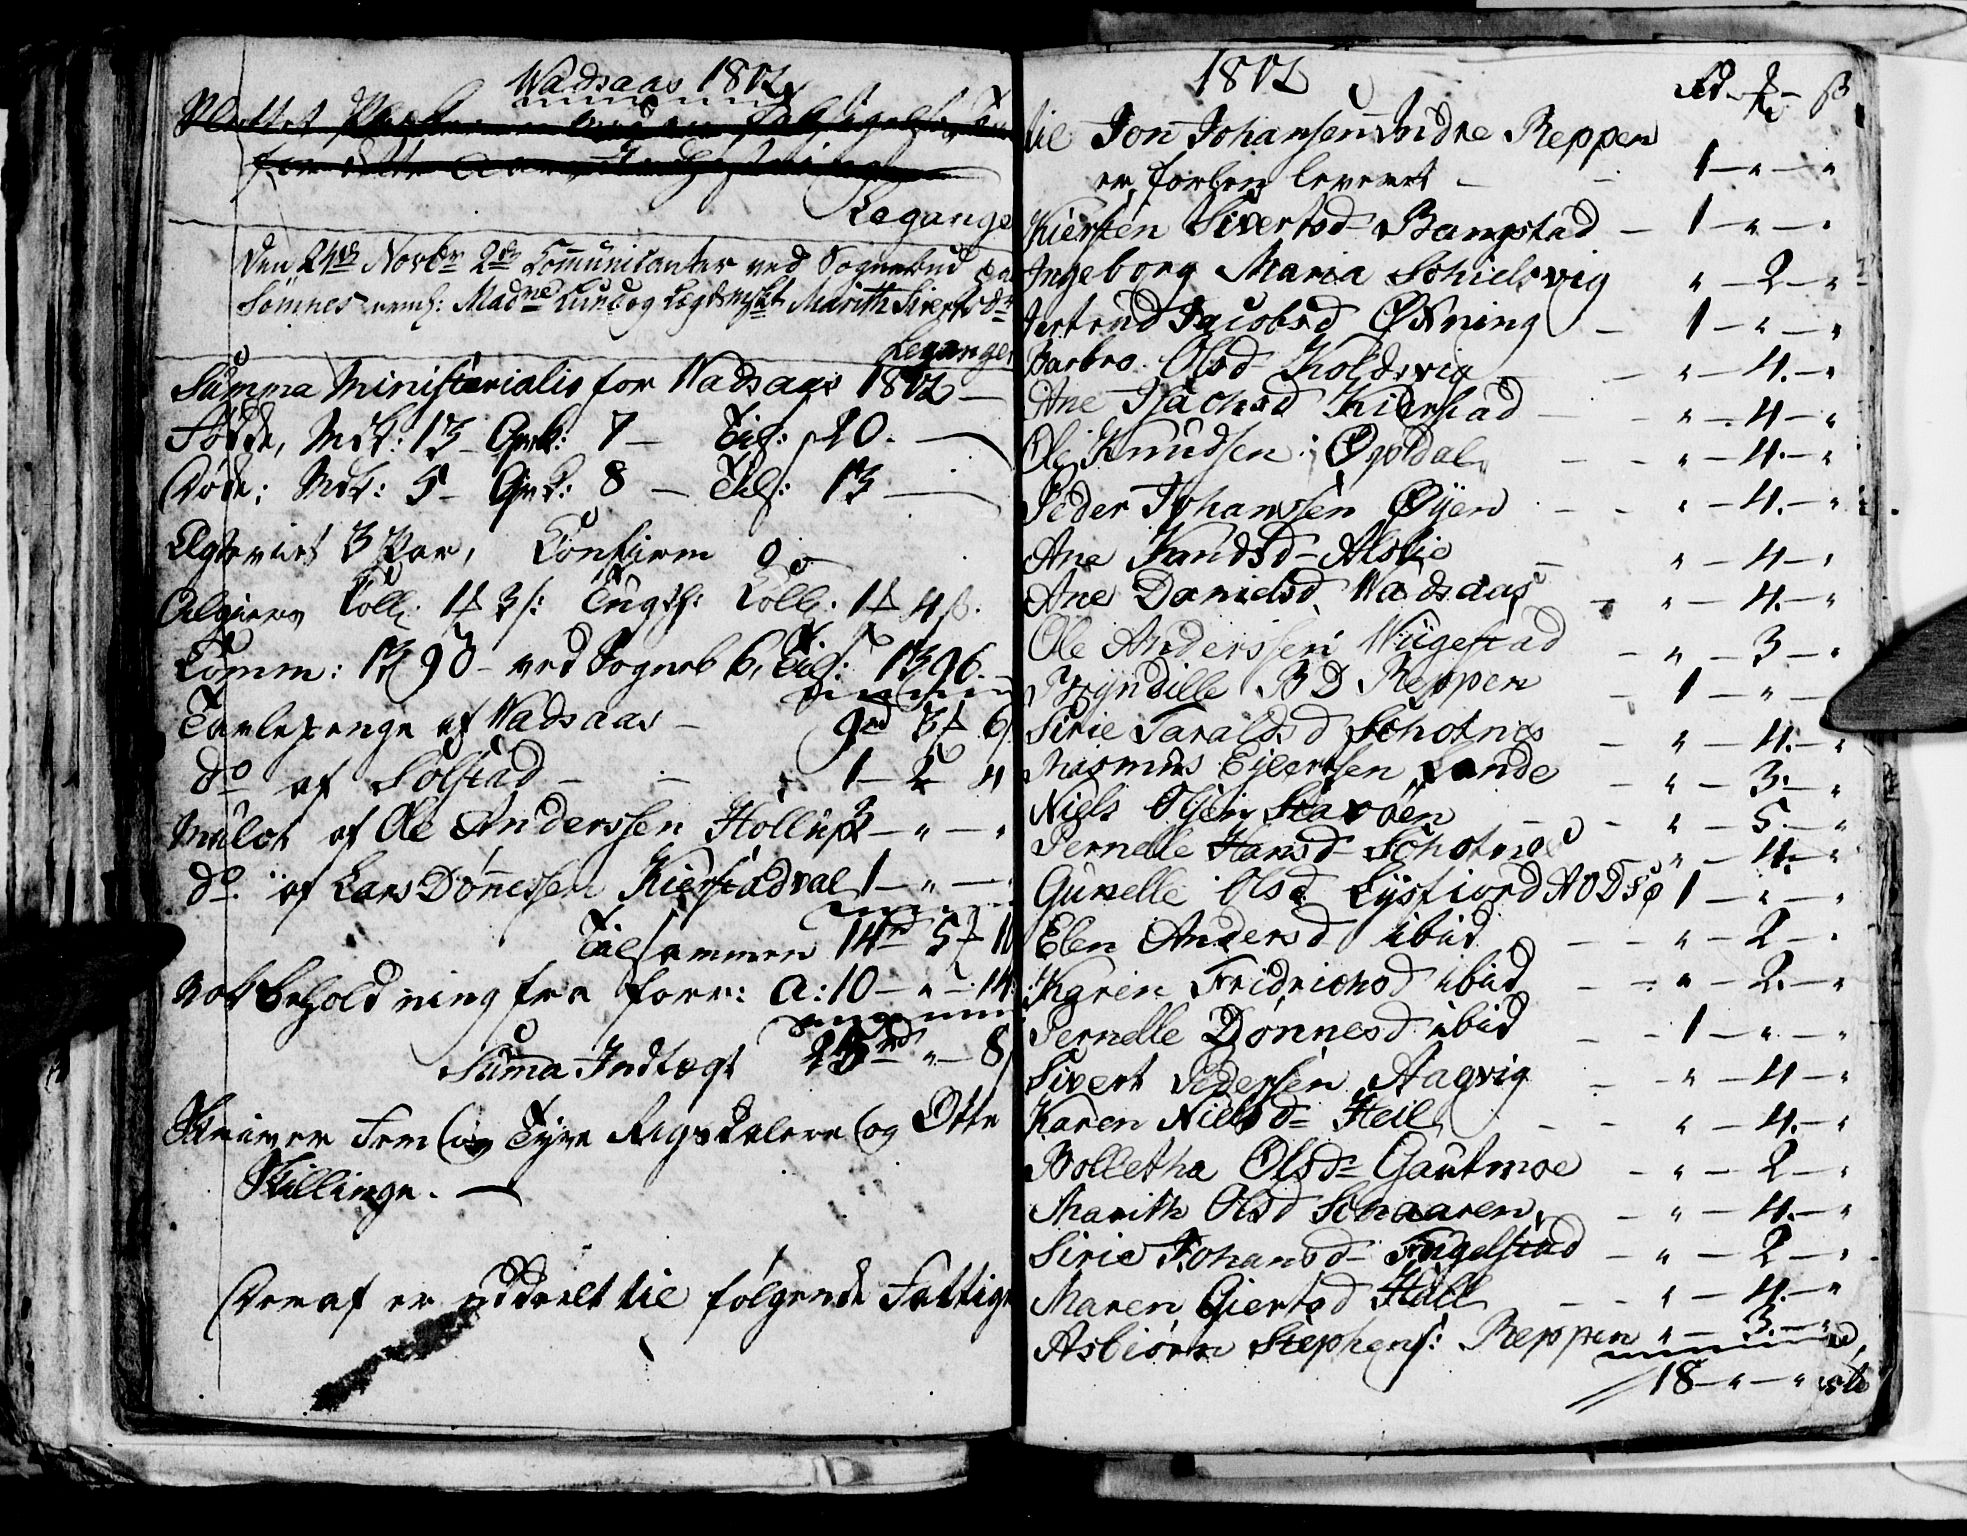 Wadsaas 1812
Legange
den 24de Novbr 2de Communicanter ved Sognebud paa
Sömnes nemlig: Madme Lund og Marith Sivertsdr
Legange
Summa Ministerialis for Wadsaas 1812 —
Födde, Mdk: 13 Qvk: 7 — Tils: 20. —
Döde: Mdk: 5 — Qvk: 8 — Tils: 13 —
Egteviet 3 Par, Confirm 0
Algiers Coll: 1 3 ß: Tugth: Coll: 1 4 ß.
Comm: 1390 — ved Sogneb 6, Tils: 1396.
Tavlepenge af Wadsaas — 9rd 3 6
do af Solstad — — 1 — 2 4
Mulct af Ole Anderssen Hollup 3 — " — "
do af Lars Dönnessen Kierstadval 1 — " — "
Tilsammen 14rd 5 10
Nok beholdning fra forr: A: 10 — " — 14
Suma Indtægt 25rd " — 8
Skriver Fem og Tyve Rigsdalere og Otte
Skillinge. —
Deraf er uddeelt til følgende Fattige
1812 Rd — ß
til Jon Johansen Indre Reppen
er forhen leveret — 1 — " — "
Kiersten Sivertsd Bangstad — 1 — " — "
Ingeborg Maria Schielsvig " — 2 — "
Giertrud Jacobsd Øxning — 1 — " — "
Barbro Olsd Koldsvig — " — 4. — "
Ane Isachsd Kierstad — " — 4 — "
Ole Knudsen: Ogoldal — " — 4. — "
Peder Johanssen Øyen — " — 4. — "
Ane Knudsd Alslie — " — 4 — "
Ane Danielsd Wadsaas — " — 4. — "
Ole Anderssen Wügestad — " — 3 — "
Bryndille B D Reppen — 1 — " — "
Sirie Taraldsd Schotnes — " — 4. — "
Rasmus Ejlertsen Lande — " — 3. — "
Niels Olsen Stavöen — " — 5. — "
Pernelle Hansd Schotnes " — 4. — "
Gunelle Olsd Lysfiord A O D sø 1 — " — "
Elen Andersd ibid — " — 2 — "
Karen Fridrichsd ibid — " — 2. — "
Pernelle Dönnesd ibid — 1 — " — "
Sivert Pedersen Aagvig — " — 4 — "
Karen Nielsd Heil — " — 4. — "
Bolletha Olsd Gautmoe — " — 2 — "
Marith Olsd Schaaren — " — 4. — "
Sirie Johansd Fugelstad — " — 2 — "
Maren Giertsd Hall — " — 4. — "
Asbiörn Stephens: Reppen " — 3. — "
18 — " — "